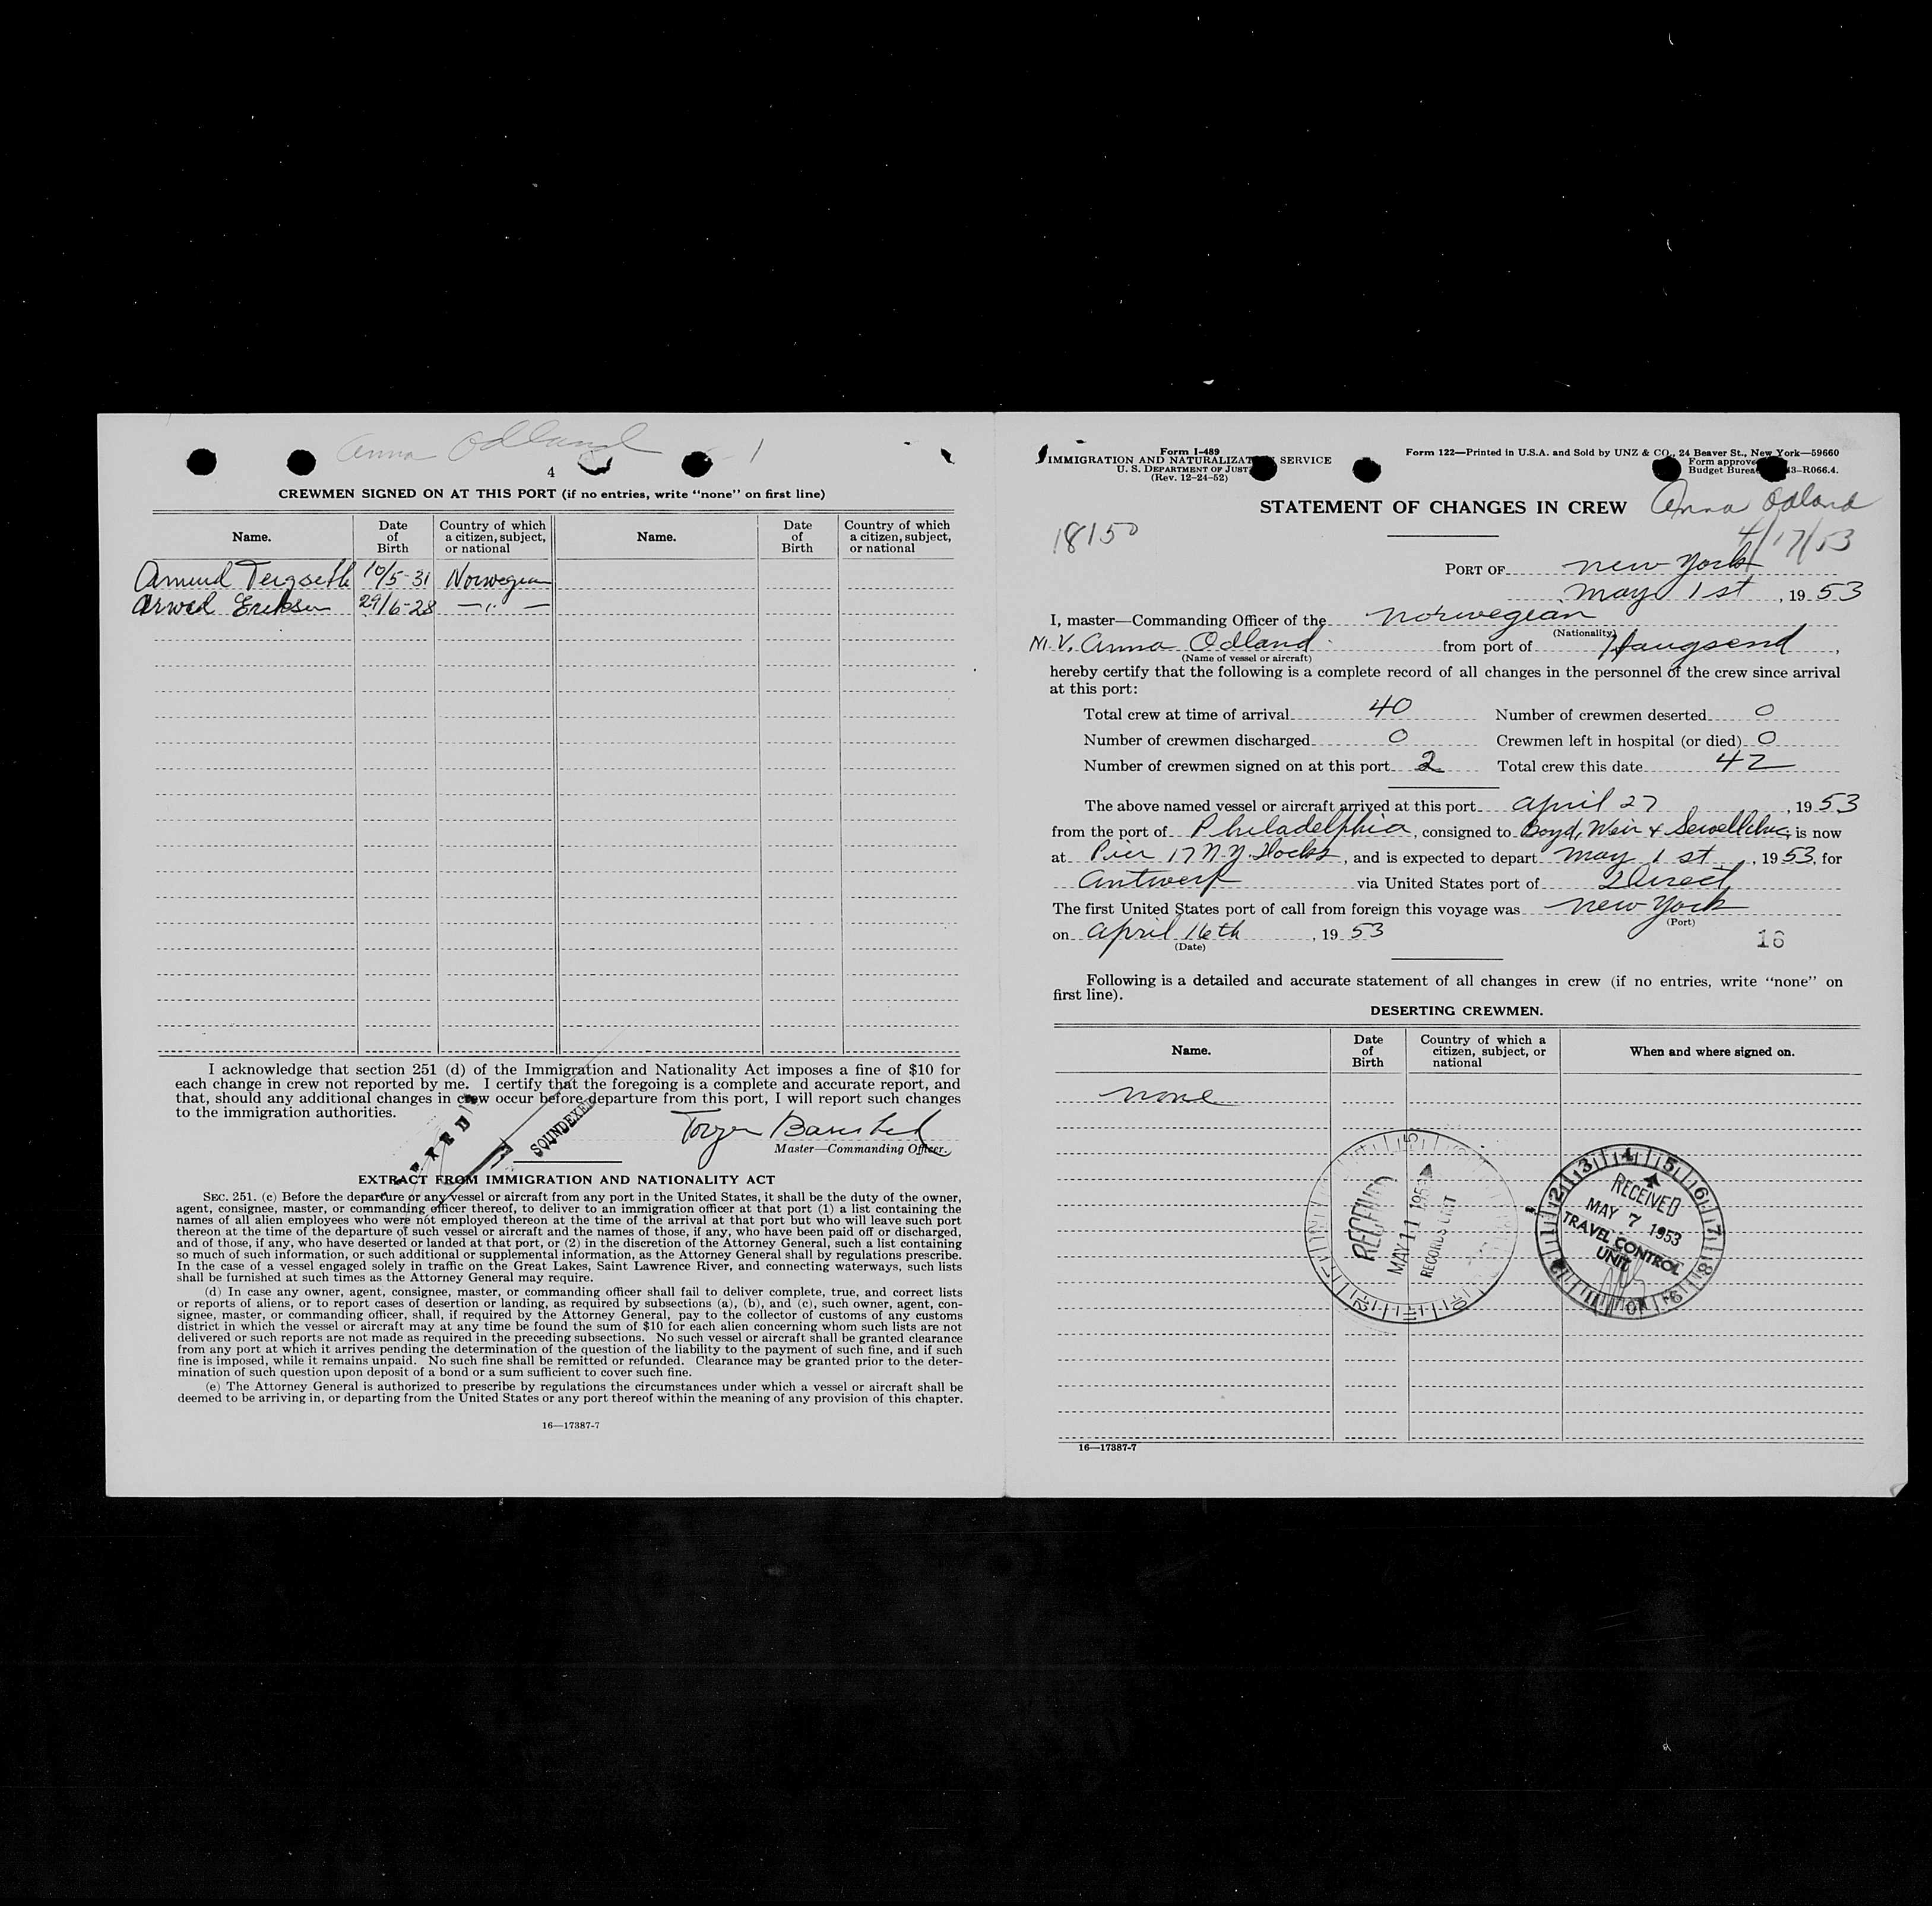 Anna Odland 1
4
CREWMEN SIGNED ON AT THIS PORT (if no entries, write "none" on first line)
Name. Date of Birth Country of which a citizen, subject, or national Name. Date of Birth Country of which a citizen, subject, or national
Amund Tergseth 10/5-31 Norwegian
Arwed Eriksen 29/6-28 — " —
I acknowledge that section 251 (d) of the Immigration and Nationality Act imposes a fine of $10 for
each change in crew not reported by me. I certify that the foregoing is a complete and accurate report, and
that, should any additional changes in crew occur before departure from this port, I will report such changes
to the immigration authorities.
SOUNDEXED
Master—Commanding Officer.
EXTRACT FROM IMMIGRATION AND NATIONALITY ACT
SEC. 251. (c) Before the departure or any vessel or aircraft from any port in the United States, it shall be the duty of the owner,
agent, consignee, master, or commanding officer thereof, to deliver to an immigration officer at that port (1) a list containing the
names of all alien employees who were not employed thereon at the time of the arrival at that port but who will leave such port
thereon at the time of the departure of such vessel or aircraft and the names of those, if any, who have been paid off or discharged,
and of those, if any, who have deserted or landed at that port, or (2) in the discretion of the Attorney General, such a list containing
so much of such information, or such additional or supplemental information, as the Attorney General shall by regulations prescribe.
In the case of a vessel engaged solely in traffic on the Great Lakes, Saint Lawrence River, and connecting waterways, such lists
shall be furnished at such times as the Attorney General may require.
(d) In case any owner, agent, consignee, master, or commanding officer shall fail to deliver complete, true, and correct lists
or reports of aliens, or to report cases of desertion or landing, as required by subsections (a), (b), and (c), such owner, agent, con-
signee, master, or commanding officer, shall, if required by the Attorney General, pay to the collector of customs of any customs
district in which the vessel or aircraft may at any time be found the sum of $10 for each alien concerning whom such lists are not
delivered or such reports are not made as required in the preceding subsections. No such vessel or aircraft shall be granted clearance
from any port at which it arrives pending the determination of the question of the liability to the payment of such fine, and if such
fine is imposed, while it remains unpaid. No such fine shall be remitted or refunded. Clearance may be granted prior to the deter-
mination of such question upon deposit of a bond or a sum sufficient to cover such fine.
(e) The Attorney General is authorized to prescribe by regulations the circumstances under which a vessel or aircraft shall be
deemed to be arriving in, or departing from the United States or any port thereof within the meaning of any provision of this chapter.
16—17387-7
Form I-489
IMMIGRATION AND NATURALIZAT SERVICE
U. S. DEPARTMENT OF JUST
(Rev. 12-24-52)
Form 122—Printed in U.S.A. and Sold by UNZ & CO., 24 Beaver St., New York—59660
Form approve
Budget Burea 43-R066.4.
STATEMENT OF CHANGES IN CREW Anna Odland
18150 4/17/53
PORT OF New York
May 1st, 1953
I, master—Commanding Officer of the Norwegian
(Nationality)
M.V. Anna Odland from port of Haugsend,
(Name of vessel or aircraft)
hereby certify that the following is a complete record of all changes in the personnel of the crew since arrival
at this port:
Total crew at time of arrival 40 Number of crewmen deserted 0
Number of crewmen discharged 0 Crewmen left in hospital (or died) 0
Number of crewmen signed on at this port 2 Total crew this date 42
The above named vessel or aircraft arrived at this port April 27, 1953
from the port of Philadelphia, consigned to Boyd, Weir & Sewell Inc; is now
at Pier 17 N.Y. Docks, and is expected to depart May 1st, 1953, for
Antwerp via United States port of Direct
The first United States port of call from foreign this voyage was New York
(Port)
on April 16th, 1953
(Date)
16
Following is a detailed and accurate statement of all changes in crew (if no entries, write "none" on
first line).
DESERTING CREWMEN.
Name. Date of Birth Country of which a citizen, subject, or national When and where signed on.
None
RECEIVED
MAY 11 1953
RECORDS UNIT
RECEIVED
MAY 7 1953
TRAVEL CONTROL
UNIT
16—17387-7